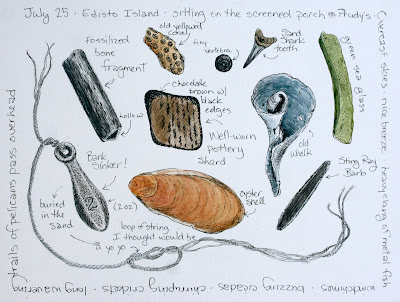 July 25 · Edisto Island · sitting on the screened porch @
Overcast skies · nice breeze · heavy clang of metal fish
windchimes · buzzing cicadas · chirruping crickets · long wavering
trails of pelicans pass overhead
Fossilized
bone
fragment
hollow
old yellowed
coral
tiny
vertebra
Sand
Shark
tooth
green sea glass
chocolate
brown w/
black
edges
Well-worn
pottery
shard
old
whelk
Sting Ray
Barb
Bank
Sinker!
2
(2 oz)
buried
in the
sand
oyster
shell
loop of string
I thought would be
a yo yo